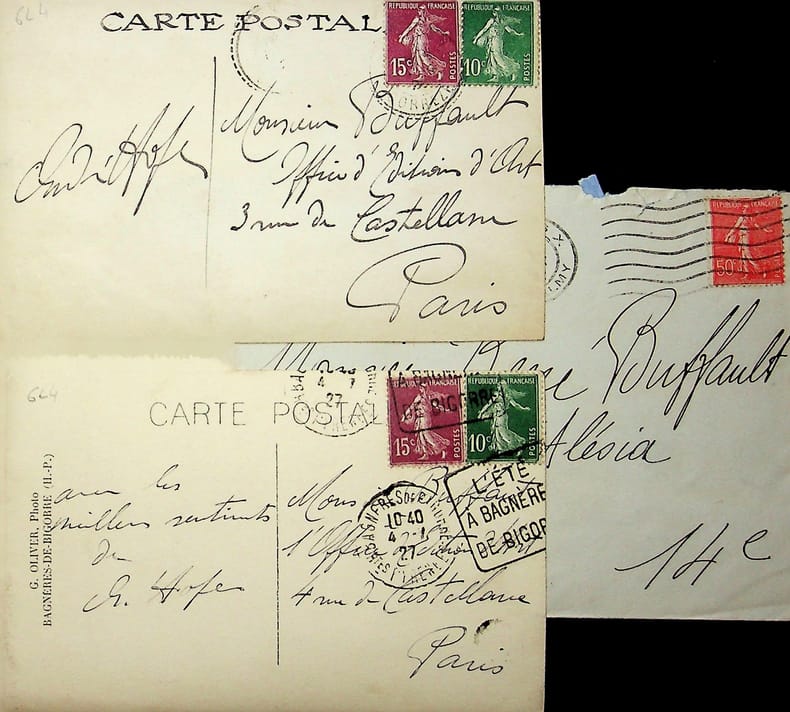 624
CARTE POSTAL
REPUBLIQUE FRANÇAISE
15c POSTES
REPUBLIQUE FRANÇAISE
10c POSTES
André Hofe
Monsieur Buffault
Office d'Editions d'Art
3 rue de Castellane
Paris
REPUBLIQUE FRANÇAISE
50c
René Buffault
Alésia
14e
624
CARTE POSTAL
REPUBLIQUE FRANÇAISE
15c POSTES
REPUBLIQUE FRANÇAISE
10c POSTES
4 7
27
DE BIGORRE
G. OLIVER, Photo
BAGNÈRES-DE-BIGORRE (H.-P.)
avec les
meilleurs sentiments
de
A. Hofe
BAGNERES DE BIGORRE
10-40
4-7
27
L'ÉTÉ
A BAGNÈRE
DE BIGOR
Mons Buffault
l'Office d'Edition d'Art
4 rue de Castellane
Paris